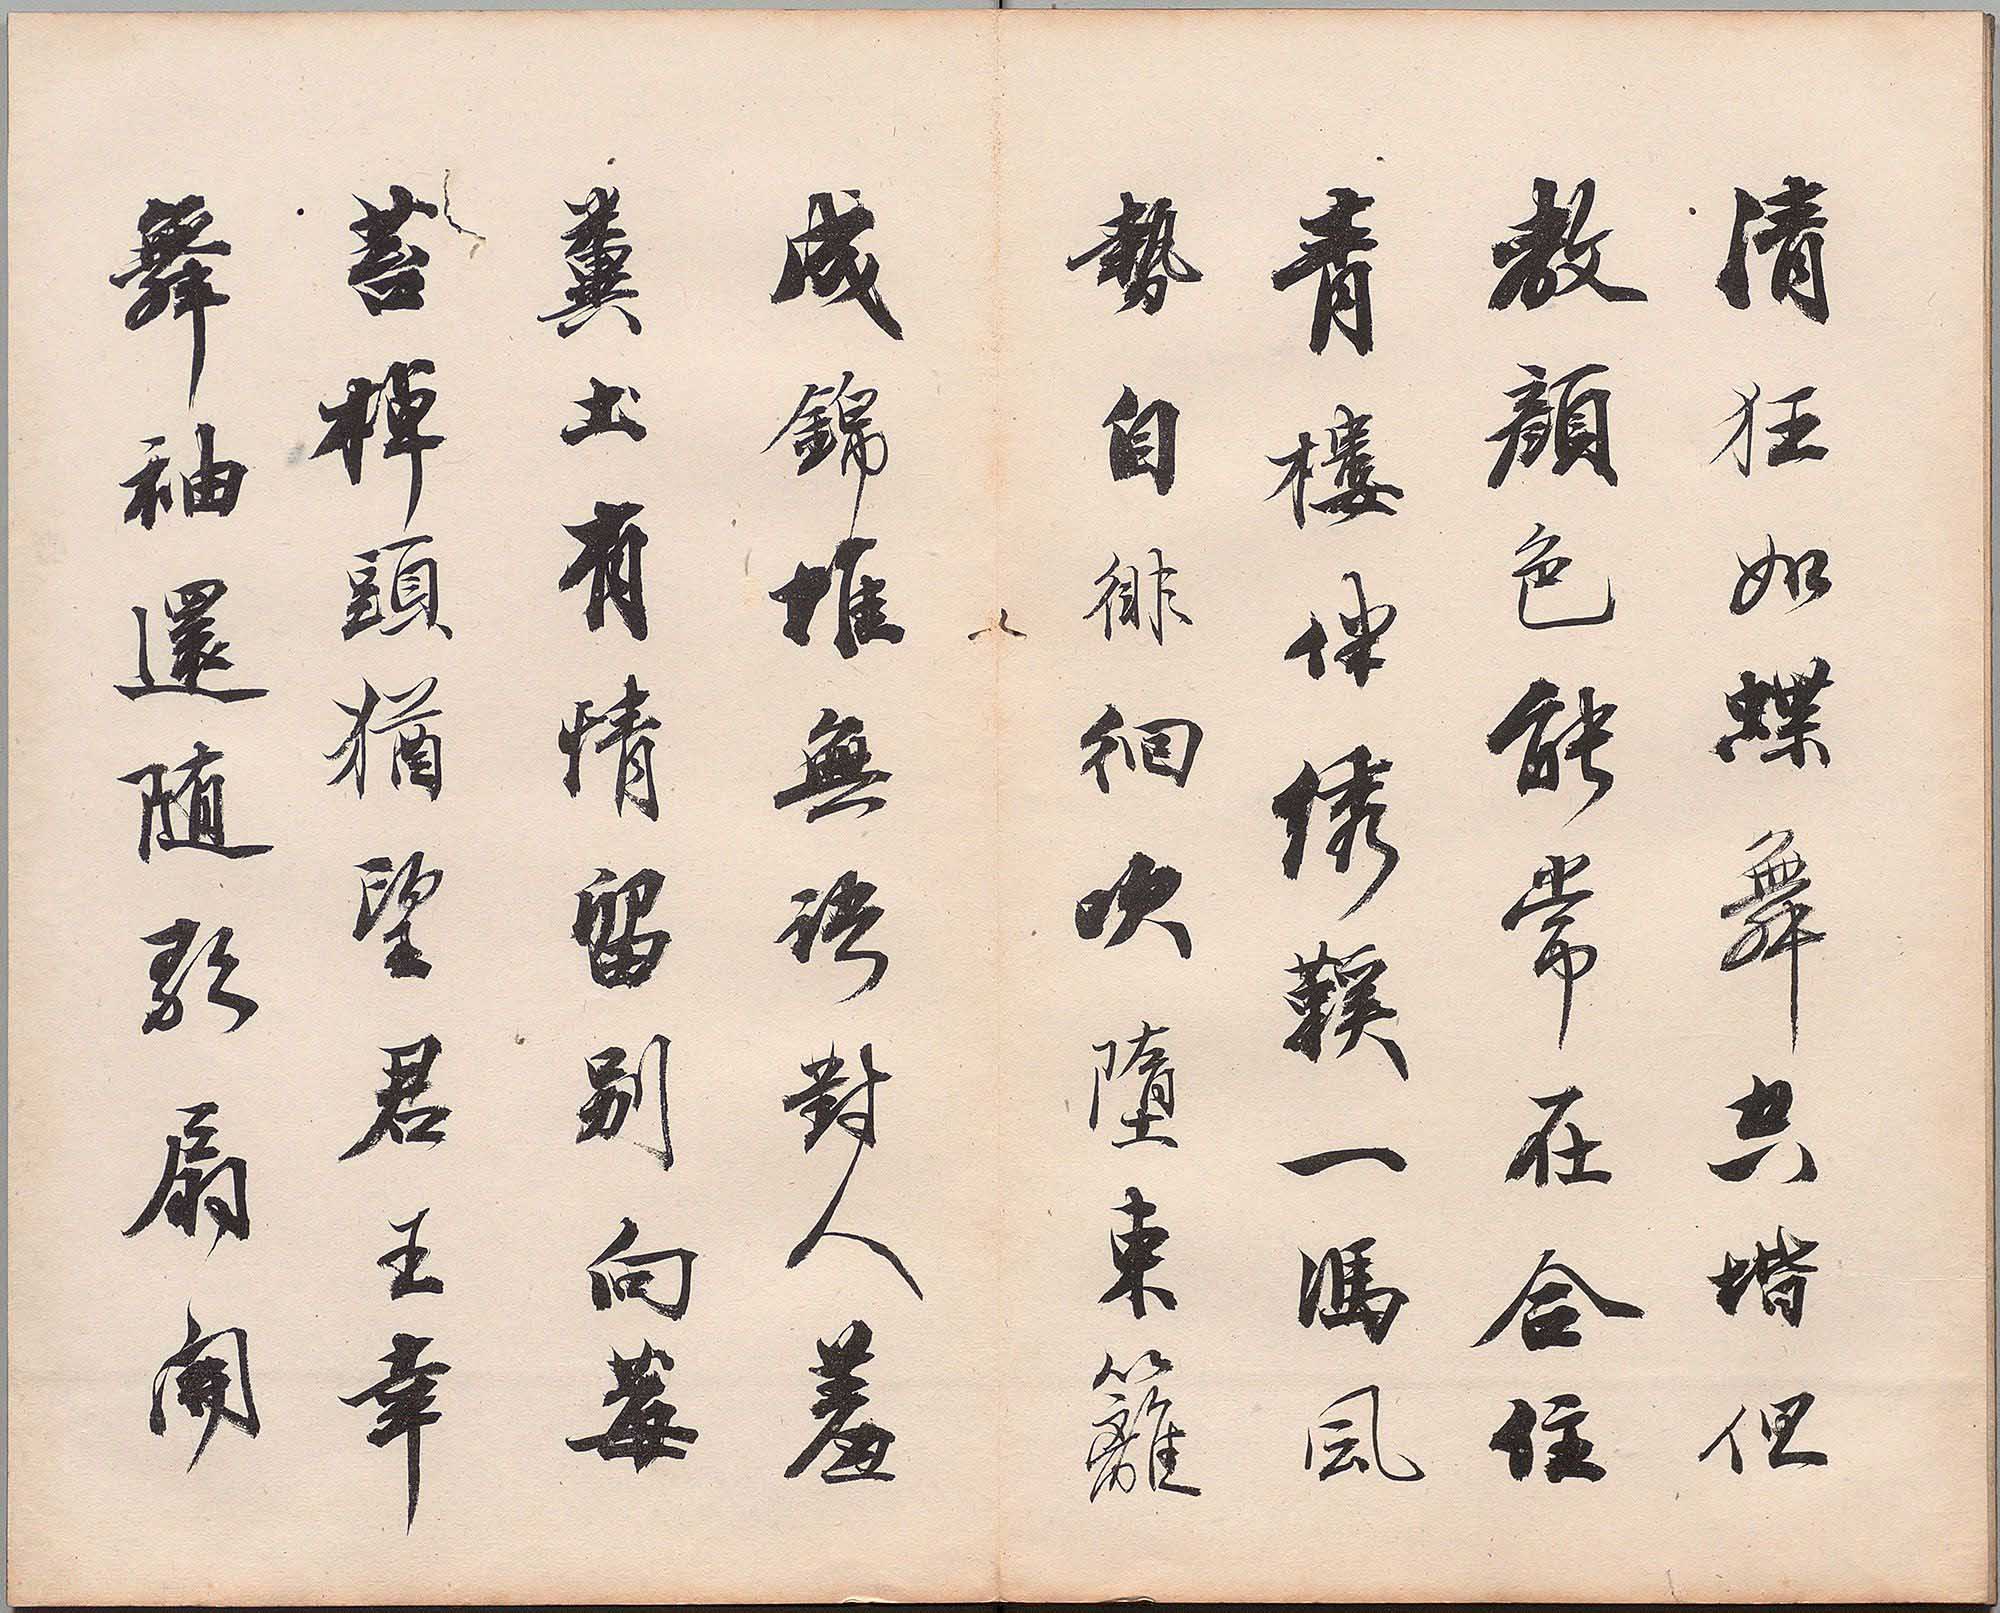 清狂如蝶舞共堦但
教顔色能常在合住
青樓伴綉鞵一馮風
勢自徘徊吹墮東籬
成錦堆無語對人羞
糞土有情留别向莓
苔掉頭猶望君王幸
舞袖還随歌扇開